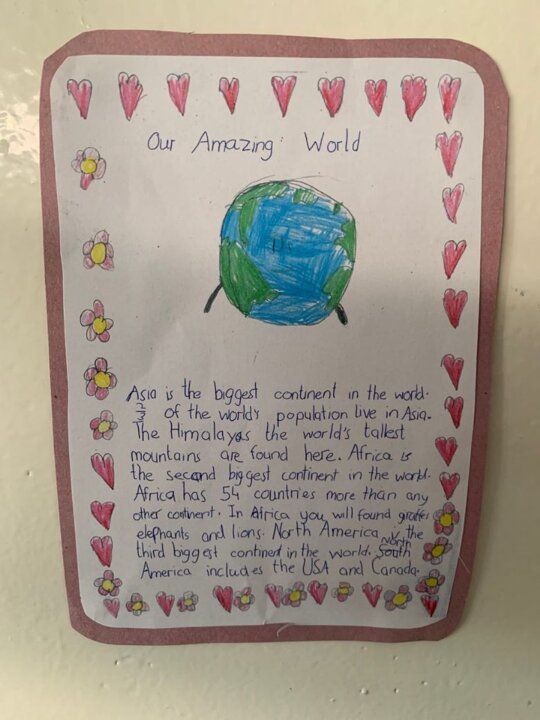 Our Amazing World
Asia is the biggest continent in the world.
2/3 of the world's population live in Asia.
The Himalayas the world's tallest
mountains are found here. Africa is
the second biggest continent in the world.
Africa has 54 countries more than any
other continent. In Africa you will found
elephants and lions. North America is the
third biggest continent in the world. North
America includes the USA and Canada.